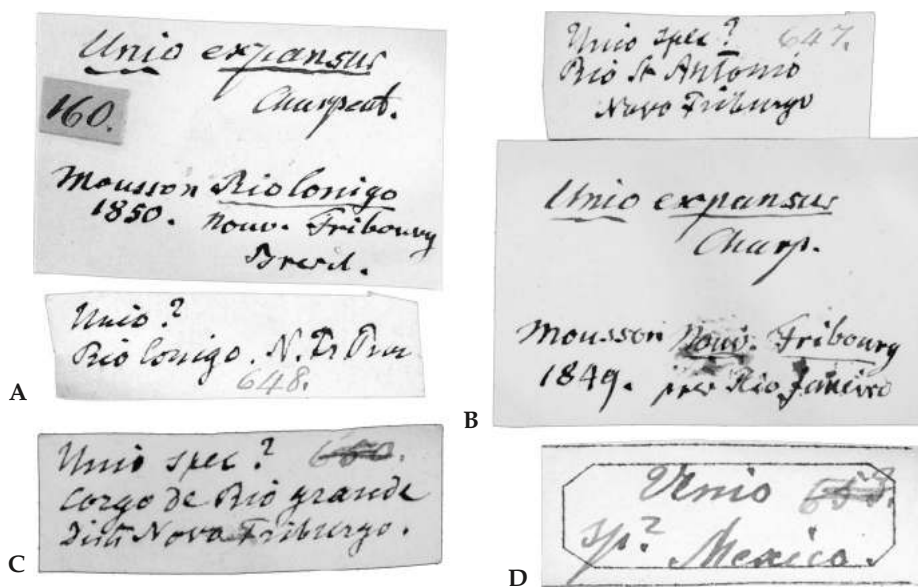 Unio expansus
Charpent.
160.
Mousson Rio lonigo
1850. nouv. Fribourg
Bresil.
Unio ?
Rio lonigo. N. Fr
648.
A
Unio spec ? 647.
Rio St Antonio
Novo Friburgo
Unio expansus
Charp.
Mousson Nouv. Fribourg
1849. Rio Janeiro
B
Unio spec ? 650.
Corgo de Rio grande
Distr Nova Friburgo.
C
Unio
sp. ? Mexico.
D